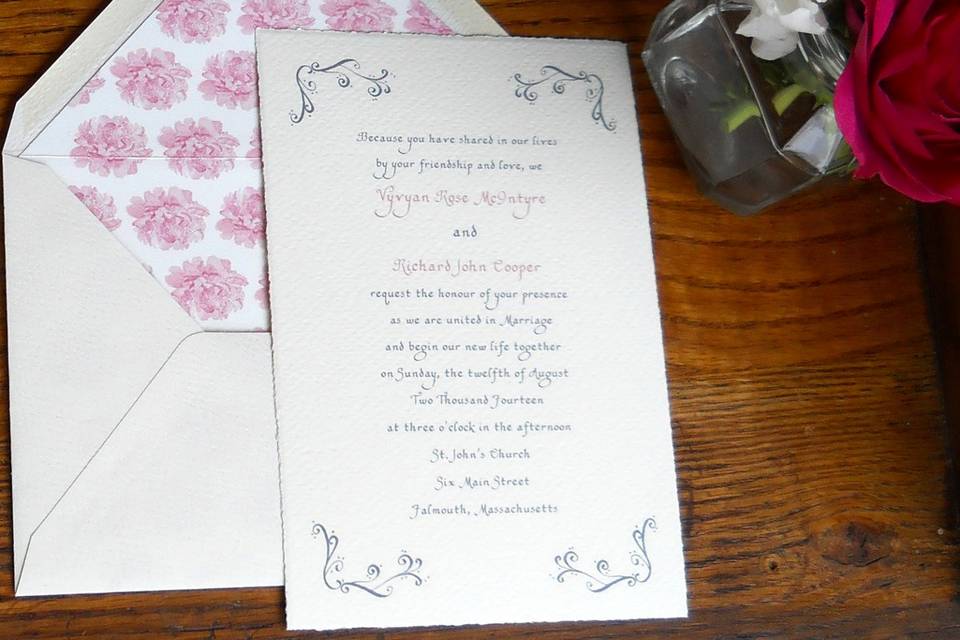 Because you have shared in our lives
by your friendship and love, we
Vyvyan Rose McIntyre
and
Richard John Cooper
request the honour of your presence
as we are united in Marriage
and begin our new life together
on Sunday, the twelfth of August
Two Thousand Fourteen
at three o'clock in the afternoon
St. John's Church
Six Main Street
Falmouth, Massachusetts